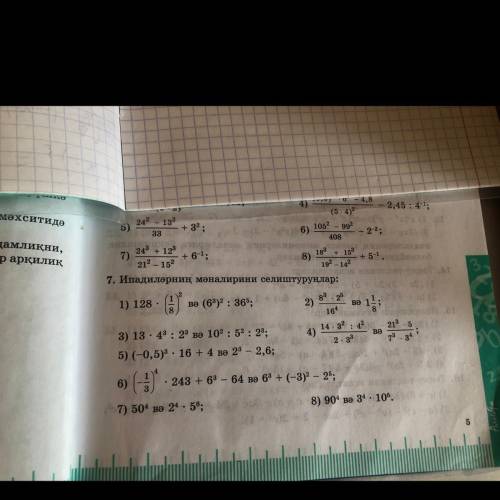 мәхситидә
дамлиқни,
р арқилиқ
4) − 4,8 / (5 · 4)² − 2,45 : 4⁻¹;
5) (24² − 13²)/33 + 3²;
6) (105² − 99²)/408 − 2⁻²;
7) (24³ + 12³)/(21² − 15²) + 6⁻¹;
8) (18³ + 15³)/(19² − 14²) + 5⁻¹.
7. Ипадиләрниң мәналирини селиштуруңлар:
1) 128 · (1/8)² вә (6³)² : 36⁵;
2) (8³ · 2⁵)/16⁴ вә 1 1/8;
3) 13 · 4³ : 2⁹ вә 10² : 5² : 2³;
4) (14 · 3² : 4²)/(2 · 3³) вә (21³ · 5)/(7³ · 3⁴);
5) (−0,5)³ · 16 + 4 вә 2³ − 2,6;
6) (−1/3)⁴ · 243 + 6³ − 64 вә 6³ + (−3)² − 2⁵;
7) 50⁴ вә 2⁴ · 5⁸;
8) 90⁴ вә 3⁴ · 10⁶.
5